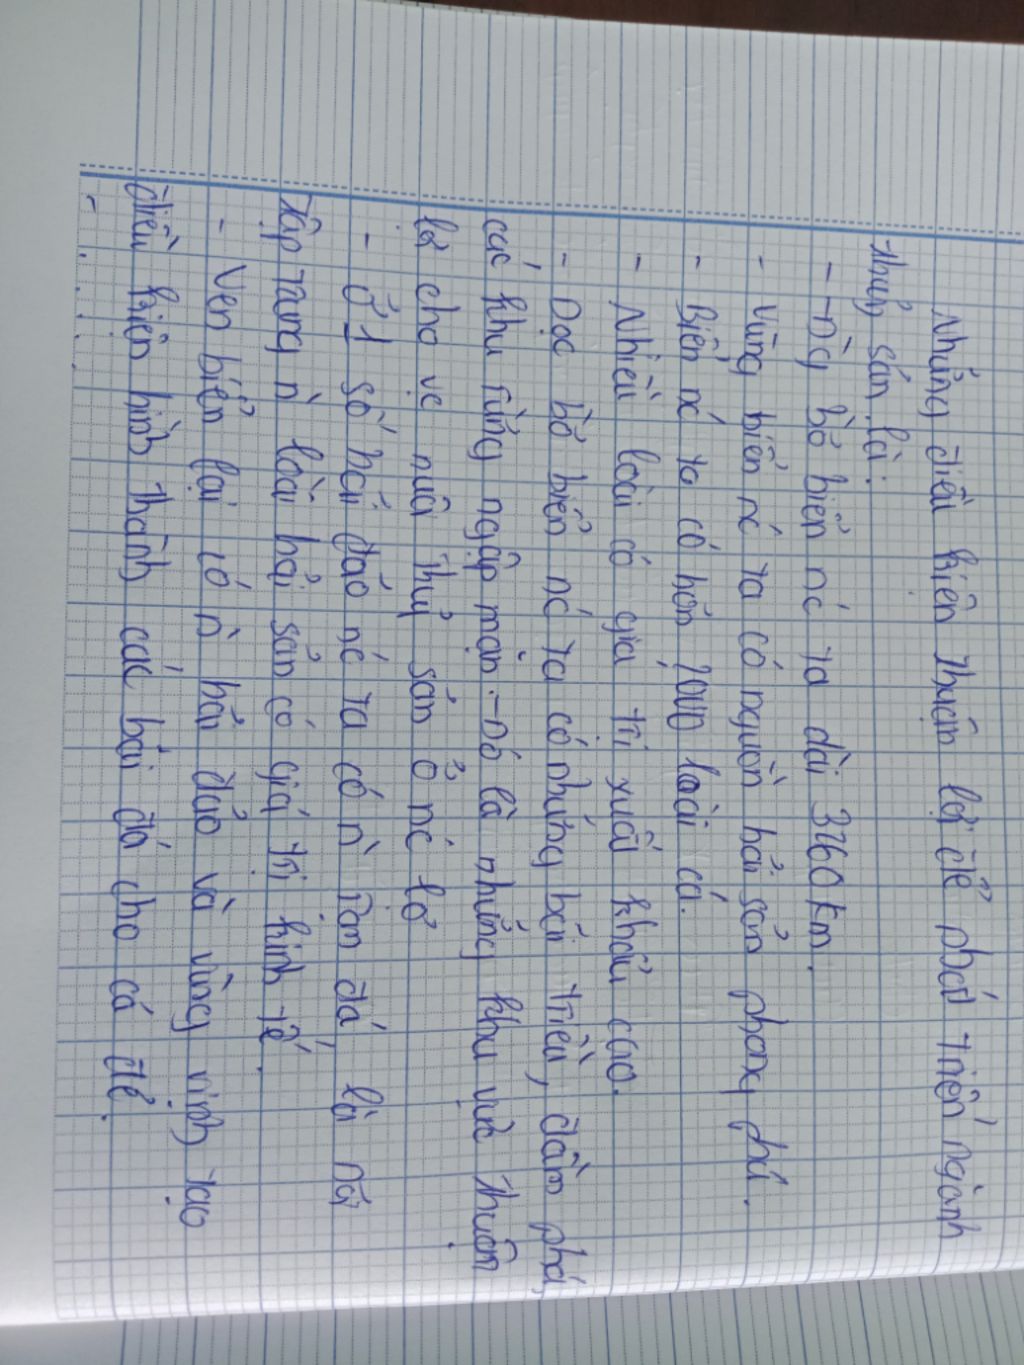 Những điều kiện thuận lợi để phát triển ngành
thủy sản là:
- Đg bờ biển nc ta dài 3260 km.
- Vùng biển nc ta có nguồn hải sản phong phú.
- Biển nc ta có hơn 2000 loài cá.
- Nhiều loài có giá trị xuất khẩu cao.
- Dọc bờ biển nc ta có những bãi triều, đầm phá,
các khu rừng ngập mặn. Đó là những khu vực thuận
lợi cho vc nuôi thủy sản ở nc lợ
- Ở 1 số hải đảo nc ta có n` rạn đá, là nơi
tập trung n` loài hải sản có giá trị kinh tế.
- Ven biển lại có n` bán đảo và vũng vịnh tạo
điều kiện hình thành các bãi đá cho cá đẻ.
-